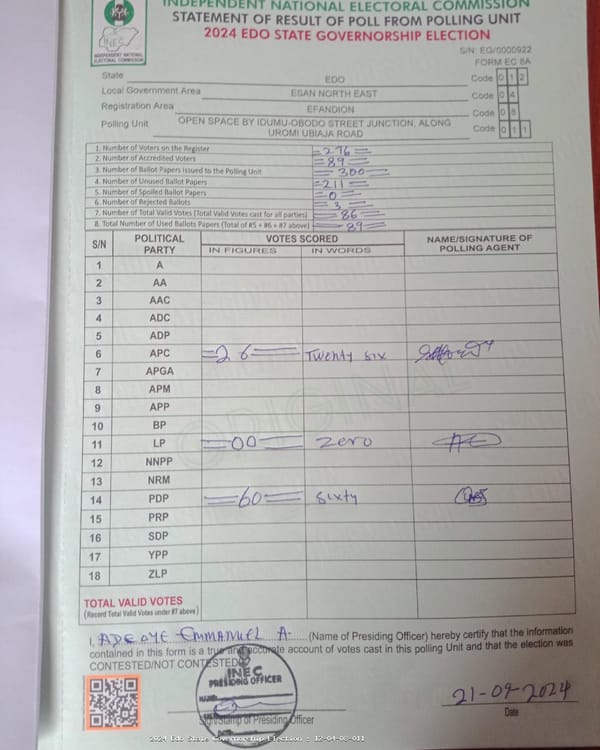 INDEPENDENT NATIONAL ELECTORAL COMMISSION
STATEMENT OF RESULT OF POLL FROM POLLING UNIT
2024 EDO STATE GOVERNORSHIP ELECTION
INEC
INDEPENDENT NATIONAL ELECTORAL COMMISSION
S/N: EG/0000922
FORM EC 8A
State EDO Code 0 1 2
Local Government Area ESAN NORTH EAST Code 0 4
Registration Area EFANDION Code 0 8
Polling Unit OPEN SPACE BY IDUMU-OBODO STREET JUNCTION, ALONG UROMI UBIAJA ROAD Code 0 1 1
1. Number of Voters on the Register =276=
2. Number of Accredited Voters =89=
3. Number of Ballot Papers Issued to the Polling Unit =300=
4. Number of Unused Ballot Papers =211=
5. Number of Spoiled Ballot Papers =0=
6. Number of Rejected Ballots =3=
7. Number of Total Valid Votes (Total Valid Votes cast for all parties) =86=
8. Total Number of Used Ballots Papers (Total of #5 + #6 + #7 above) =89=
S/N POLITICAL PARTY VOTES SCORED NAME/SIGNATURE OF POLLING AGENT
IN FIGURES IN WORDS
1 A
2 AA
3 AAC
4 ADC
5 ADP
6 APC =26= Twenty six
7 APGA
8 APM
9 APP
10 BP
11 LP =00= Zero
12 NNPP
13 NRM
14 PDP =60= Sixty
15 PRP
16 SDP
17 YPP
18 ZLP
ORIGINAL
TOTAL VALID VOTES
(Record Total Valid Votes under #7 above)
I, ADEOYE EMMANUEL A. (Name of Presiding Officer) hereby certify that the information
contained in this form is a true and accurate account of votes cast in this polling Unit and that the election was
CONTESTED/NOT CONTESTED.
INEC
PRESIDING OFFICER
NAME
Sign/Stamp of Presiding Officer
Date
21-09-2024
Date
2024 Edo State Governorship Election - 12-04-08-011